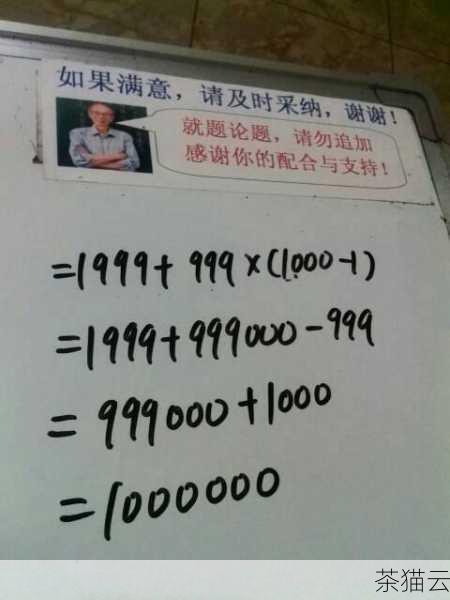 如果满意，请及时采纳，谢谢！
就题论题，请勿追加
感谢你的配合与支持！
=1999+999×(1000-1)
=1999+999000-999
=999000+1000
=1000000
茶猫云